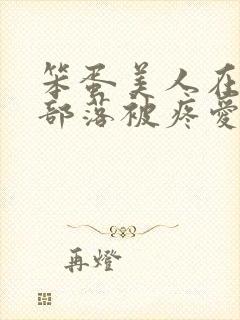 笨蛋美人在
部落被疼愛
再燈